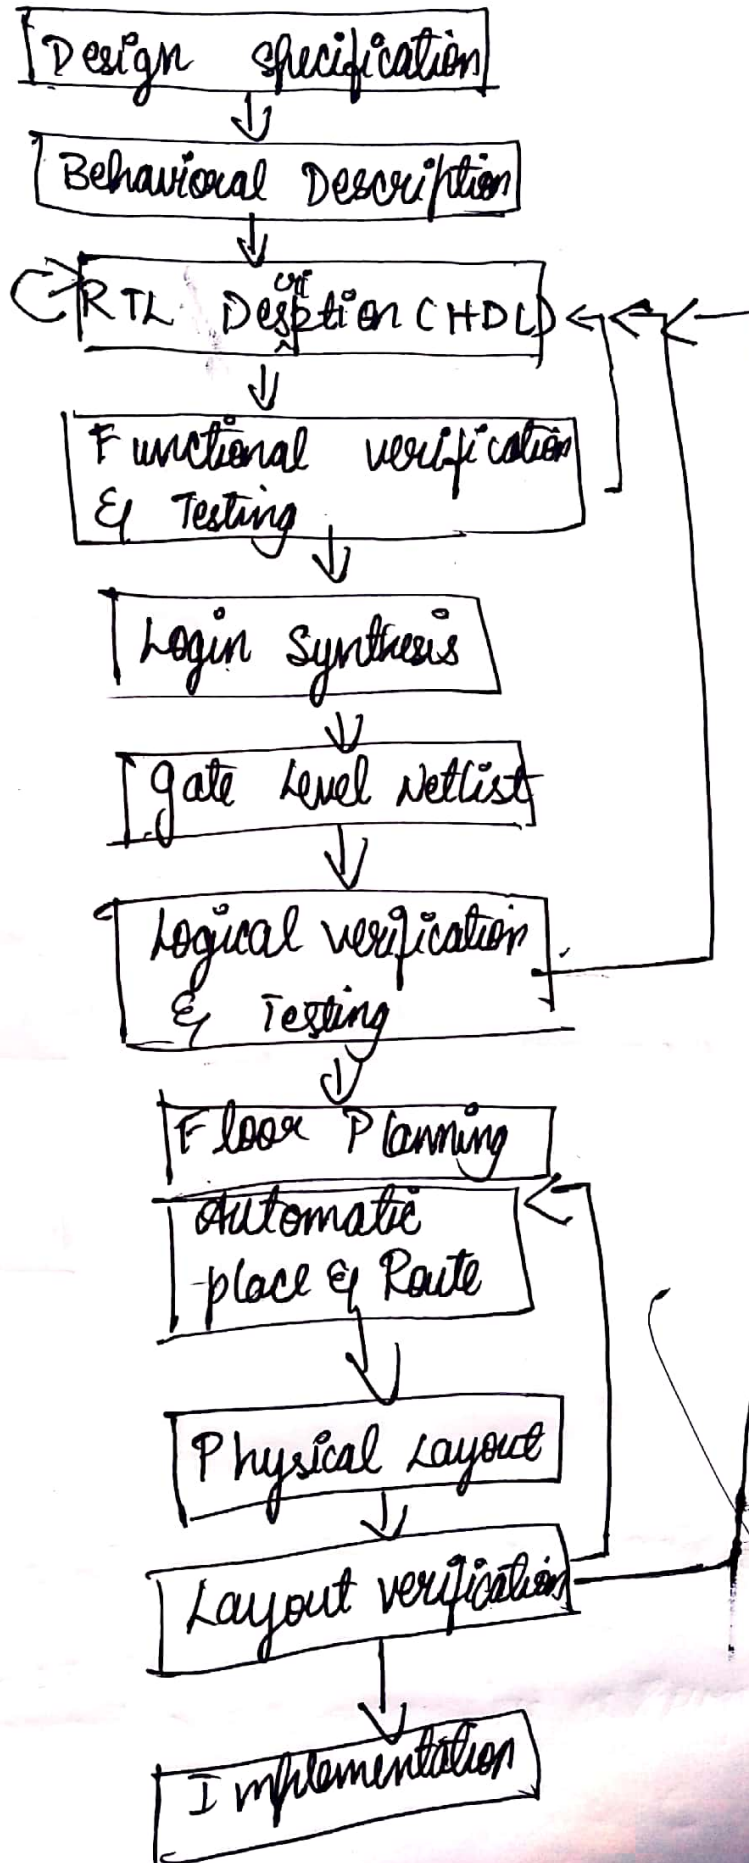 Design specification
Behavioral Description
RTL Description (HDL)
Functional verification
& Testing
Login Synthesis
Gate Level Netlist
Logical verification
& Testing
Floor Planning
Automatic
place & Route
Physical Layout
Layout verification
Implementation